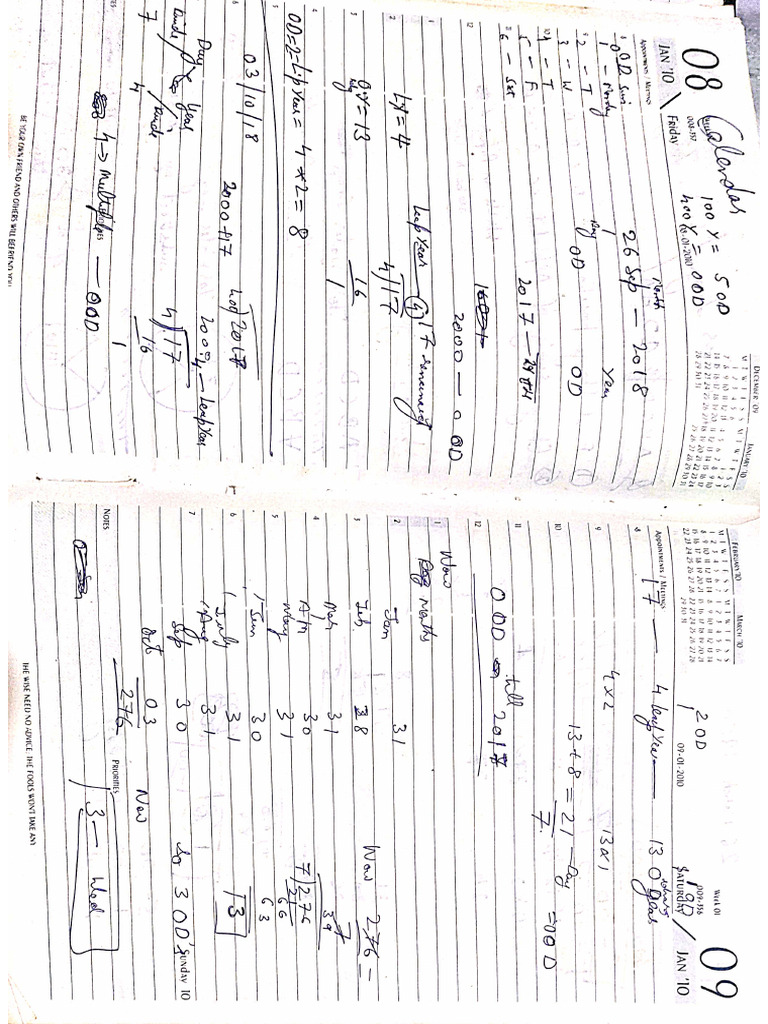 08
JAN '10
Calendar
FRIDAY
008-357
08-01-2010
100 Y = 5 OD
400 Y = 0 OD
DECEMBER '09
JANUARY '10
M T W T F S S
APPOINTMENTS / MEETINGS
OD
0 - Sun
1 - Monday
2 - T
3 - W
4 - T
5 - F
6 - Sat
Month
26 Sep - 2018
Day
Year
OD
OD
2017 -
2000 - 0 OD
Leap Year 4 17 - remaining
4) 17
16
1
LY = 4
OY = 13
OD = 2 = Leap Year = 4 x 2 = 8
03/10/18
2000 + 17
400) 2017
2000 - Leap Year
Day
Year
7
4
4) 17
16
1
4 -> Multiples - 0 OD
NOTES
BE YOUR OWN FRIEND AND OTHERS WILL BEFRIEND YOU
09
JAN '10
SATURDAY
WEEK 01
009-356
09-01-2010
FEBRUARY '10
MARCH '10
M T W T F S S
APPOINTMENTS / MEETINGS
2 OD
1 OD
17 - 4 leap Year - 13 Ordinary Year
4 x 2
13 x 1
13 + 8 = 21 - Day
7
= 0 OD
0 OD till 2017
Now
Months
Jan 31
Feb 28
Mah 31
Apr 30
May 31
Jun 30
July 31
Aug 31
Sep 30
Oct 03
276
Now 276 =
7) 276 39
21
66
63
3
So 3 OD's
SUNDAY 10
Now
3 - Wed
NOTES
PRIORITIES
THE WISE NEED NO ADVICE: THE FOOLS WON'T TAKE ANY